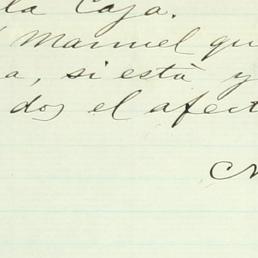 la Caja.
Manuel qu
a, si està y
dos el afect